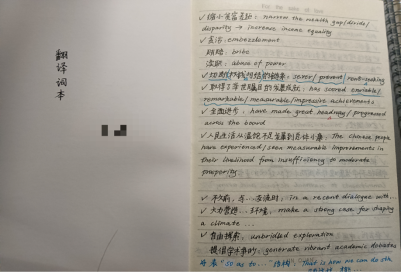 翻译词本
缩小贫富差距: narrow the wealth gap/divide/
disparity → increase income equality
贪污: embezzlement
贿赂: bribe
渎职: abuse of power
sever/prevent rent-seeking
取得了举世瞩目的发展成就: has scored enviable/
remarkable/measurable/impressive achievements
全面进步: have made great headway/progressed
across the board
人民生活从温饱不足发展到总体小康: The Chinese people
have experienced/seen measurable improvements in
their livelihood from insufficiency to moderate
prosperity
不久前, 在...交流时, in a recent dialogue with...
大力营造...环境, make a strong case for shaping
a climate...
自由探索, unbridled exploration
generate vibrant academic debates
"so as to..." That is how we can do sth